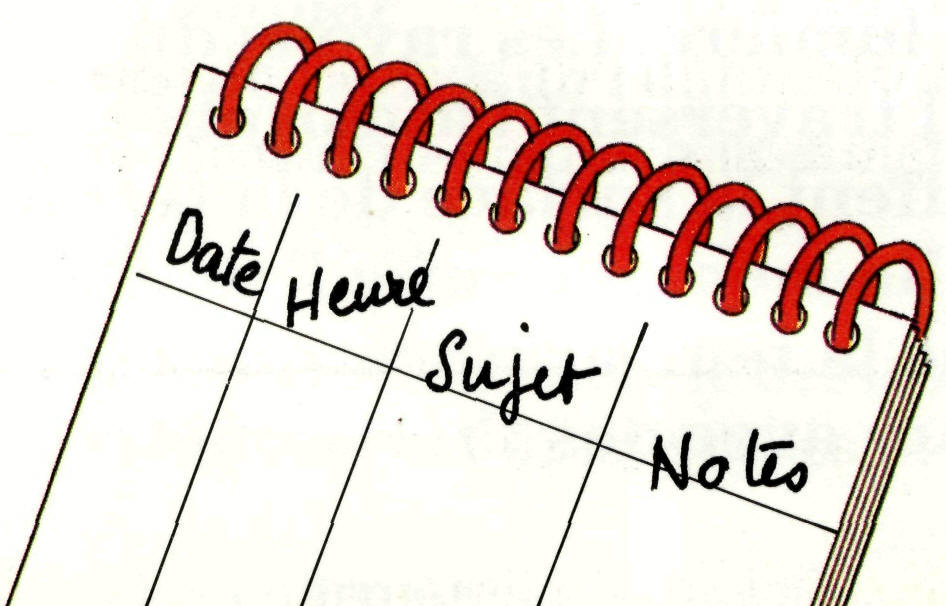 Date Heure Sujet Notes